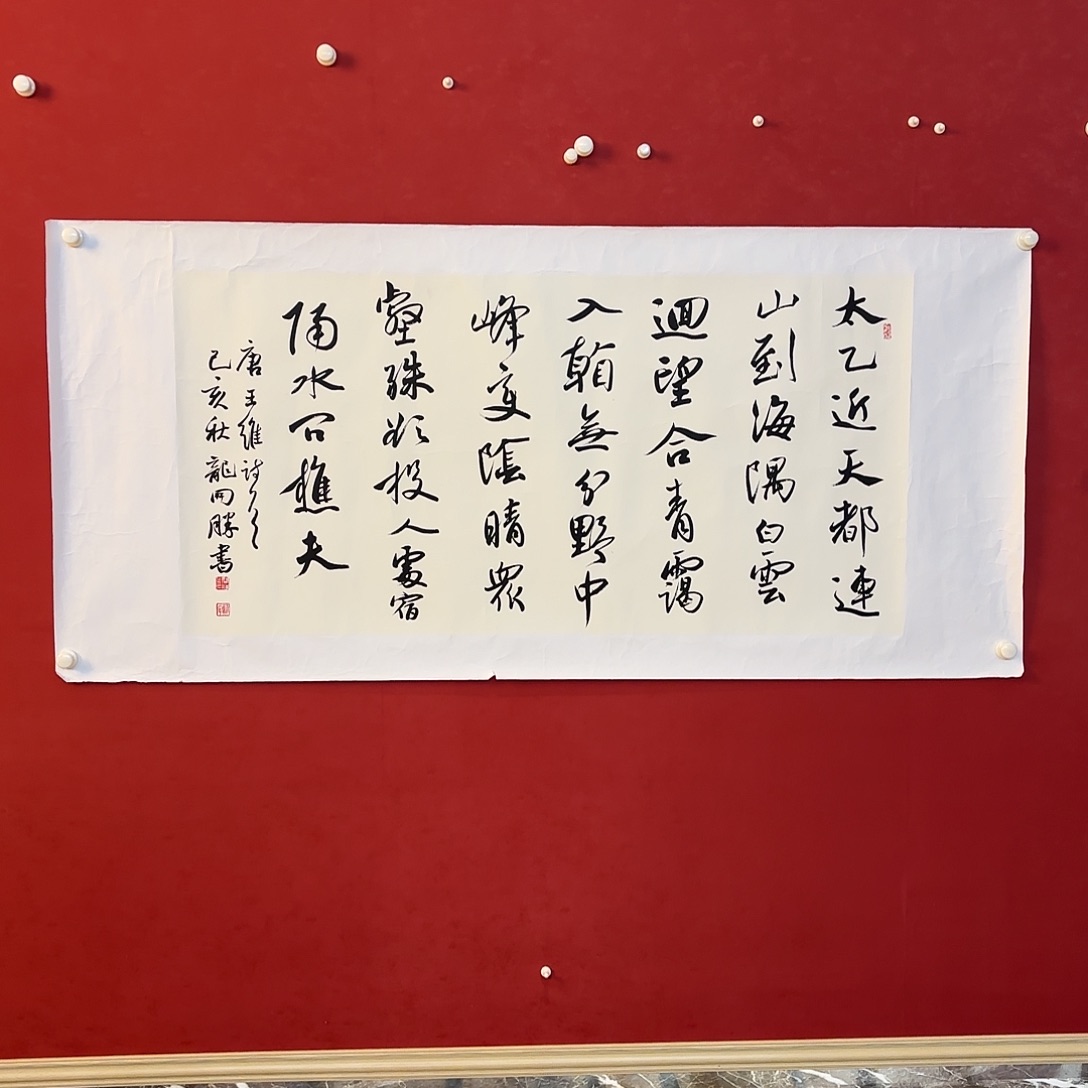 太乙近天都連
山到海隅白雲
迴望合青靄
入看無分野中
峰變陰晴衆
壑殊欲投人處宿
隔水問樵夫
唐王維詩
己亥秋龍開勝書